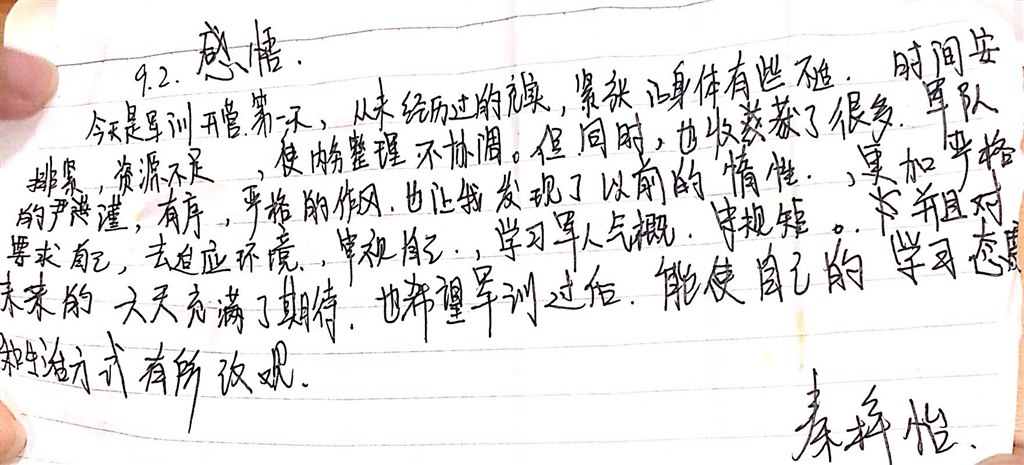 9.2. 感悟.
今天是军训开营第一天，从未经历过的充实，紧张让身体有些不适. 时间安
排紧，资源不足，使内务整理不协调。但同时，也收获了很多. 军队
的严谨，有序，严格的作风. 也让我发现了以前的惰性.，更加严格
要求自己，去适应环境.，审视自己.，学习军人气概. 守规矩。. 并且对
未来的六天充满了期待. 也希望军训过后. 能使自己的学习态度
和生活方式有所改观.
秦梓怡.